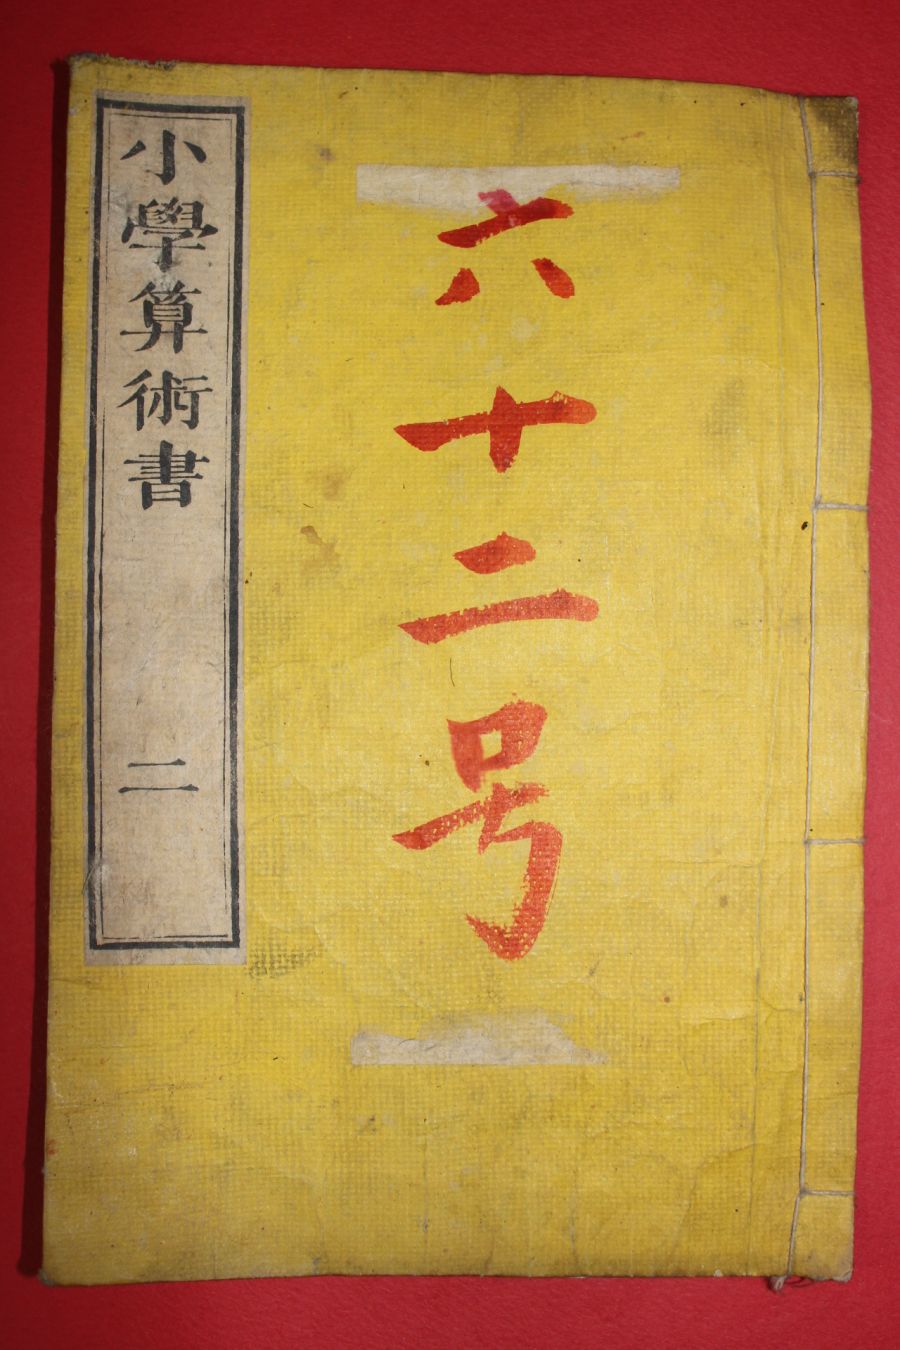 六十二号
小學算術書 二